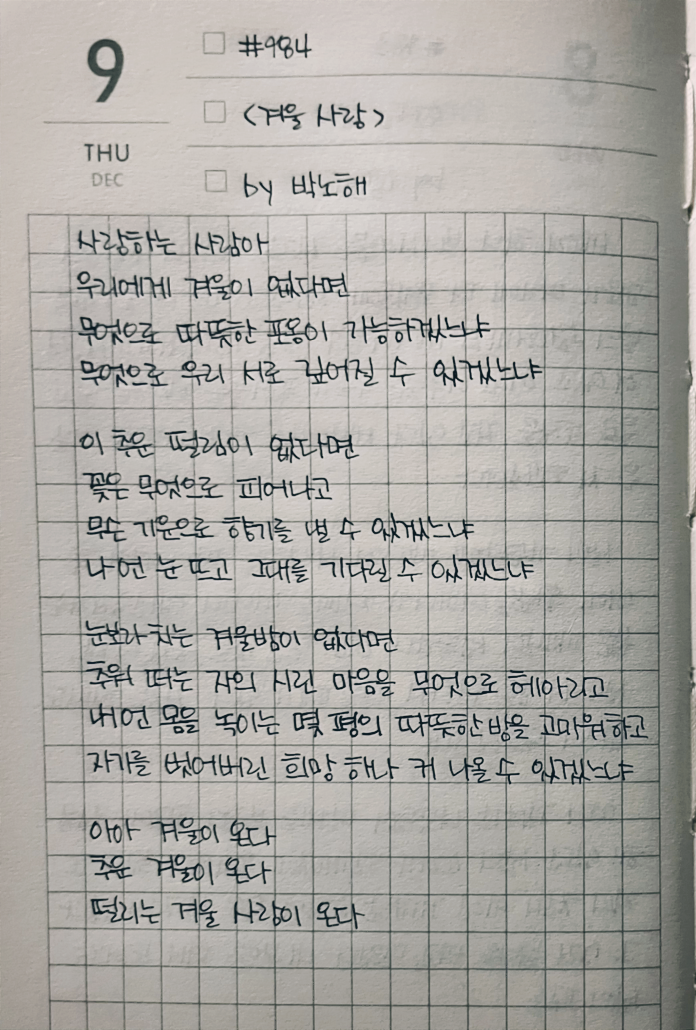 9
THU
DEC
#984
<겨울 사랑>
by 박노해
사랑하는 사람아
우리에게 겨울이 없다면
무엇으로 따뜻한 포옹이 가능하겠느냐
무엇으로 우리 서로 깊어질 수 있겠느냐
이 추운 떨림이 없다면
꽃은 무엇으로 피어나고
무슨 기운으로 향기를 낼 수 있겠느냐
나 언 눈 뜨고 그대를 기다릴 수 있겠느냐
눈보라 치는 겨울밤이 없다면
추워 떠는 자의 시린 마음을 무엇으로 헤아리고
내 언 몸을 녹이는 몇 평의 따뜻한 방을 고마워하고
자기를 벗어버린 희망 하나 커 나올 수 있겠느냐
아아 겨울이 온다
추운 겨울이 온다
떨리는 겨울 사랑이 온다